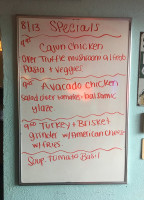 8/13 Specials
9.50 Cajun Chicken
Over Truffle mushroom alfredo
Pasta + veggies
9.50 Avacado chicken
Salad over w/ tomatoes + balsamic
glaze
9.50 Turkey + Brisket
grinder w/American Cheese
w/ fries
Soup: Tomato Basil